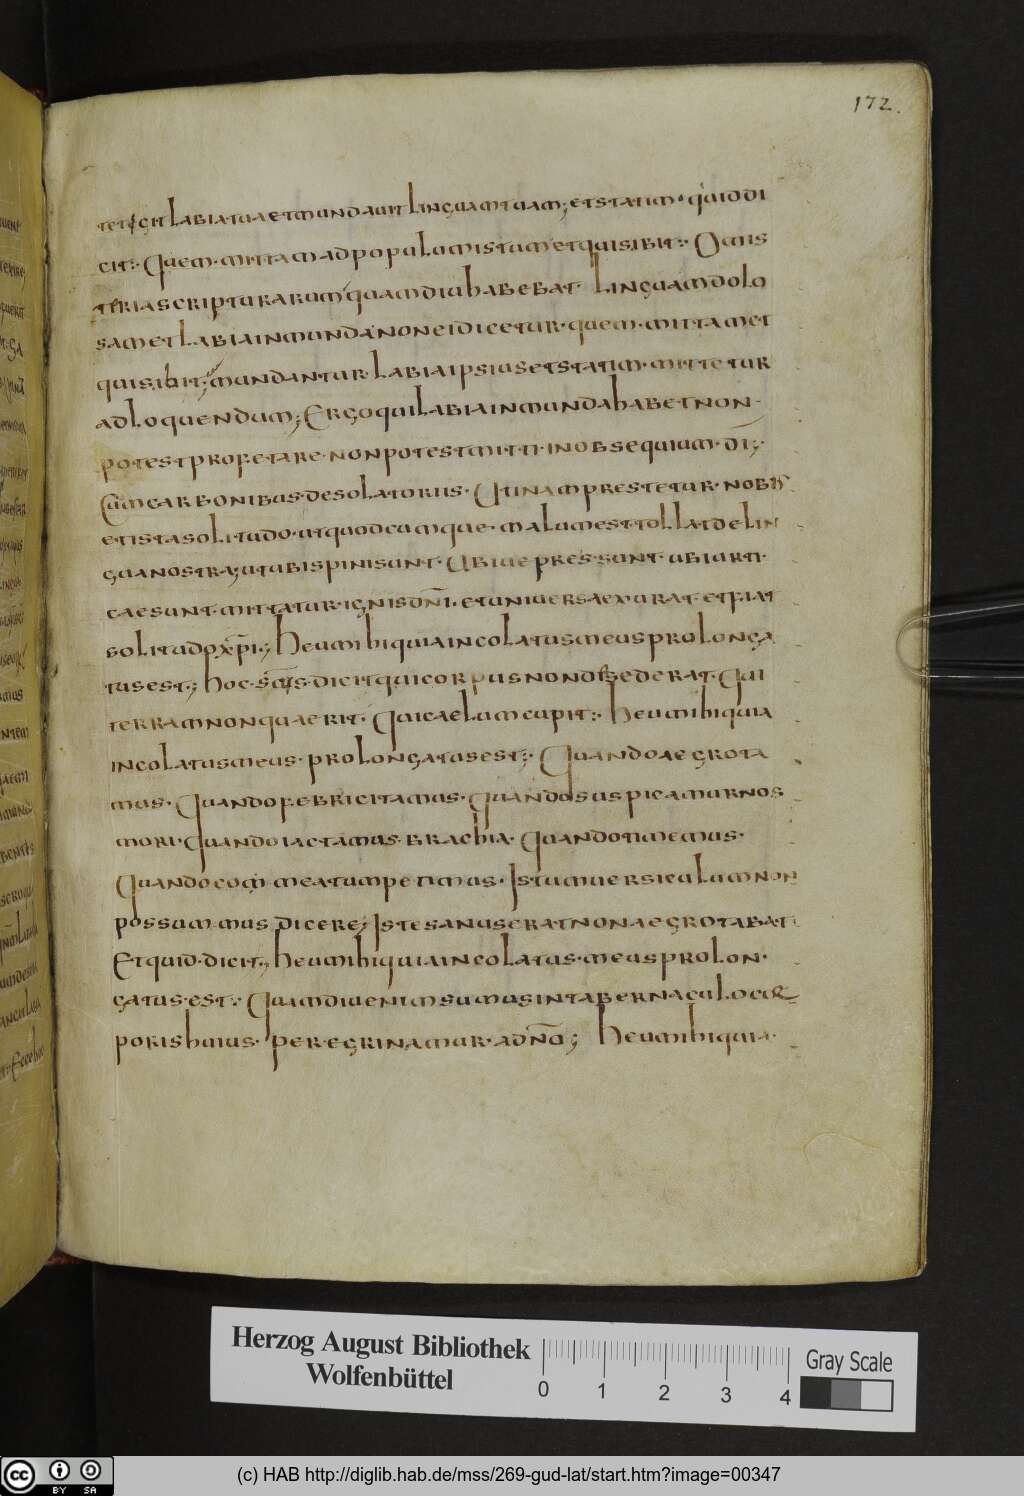 172.
tetigit labia tua et mundauit linguam tuam; et statim. quid di
cit:. Quem. mittam ad populum istum et quis ibit:. O mis
teria scripturarum quamdiu habebat linguam dolo
sam et labia inmunda non ei dicetur. quem. mittam et
quis. ibit; mundantur. labia ipsius et statim. mittetur
ad loquendum; Ergo qui labia inmunda habet non.
potest profetare. non potest mitti. in obsequium. dī;.
Cum carbonibus. desolatoriis. Utinam prestetur. nobis
et ista solitudo. ut quodcumque. malum est tollat de lin
gua nostra; ut ubi spini sunt. Ubi uepres. sunt. ubi urti.
cae sunt. mittatur. ignis dn̄i. et uniuersa exurat. et fiat
solitudo xp̄i.; heu mihi quia incolatus meus prolonga
tus est.; hoc. sc̄s. dicit qui corpus non desederat. Qui
terram non quaerit. Qui caelum cupit:. heu mihi quia
incolatus meus. prolongatus est;. Quando aegrota
mus. Quando febricitamus. Quando suspicamur nos
mori. quando iactamus. brachia. Quando timemus.
Quando com meatum petimus. Istum uersiculum non
possummus dicere; Iste sanus erat non aegrotabat
Et quid. dicit.; heu mihi quia incolatus. meus prolon.
gatus. est:. Quamdiu enim sumus in tabernaculo cor
poris huius. peregrinamur. ad n̄o; heu mihi quia.
Herzog August Bibliothek
Wolfenbüttel
0 1 2 3 4
Gray Scale
cc BY SA
(c) HAB http://diglib.hab.de/mss/269-gud-lat/start.htm?image=00347